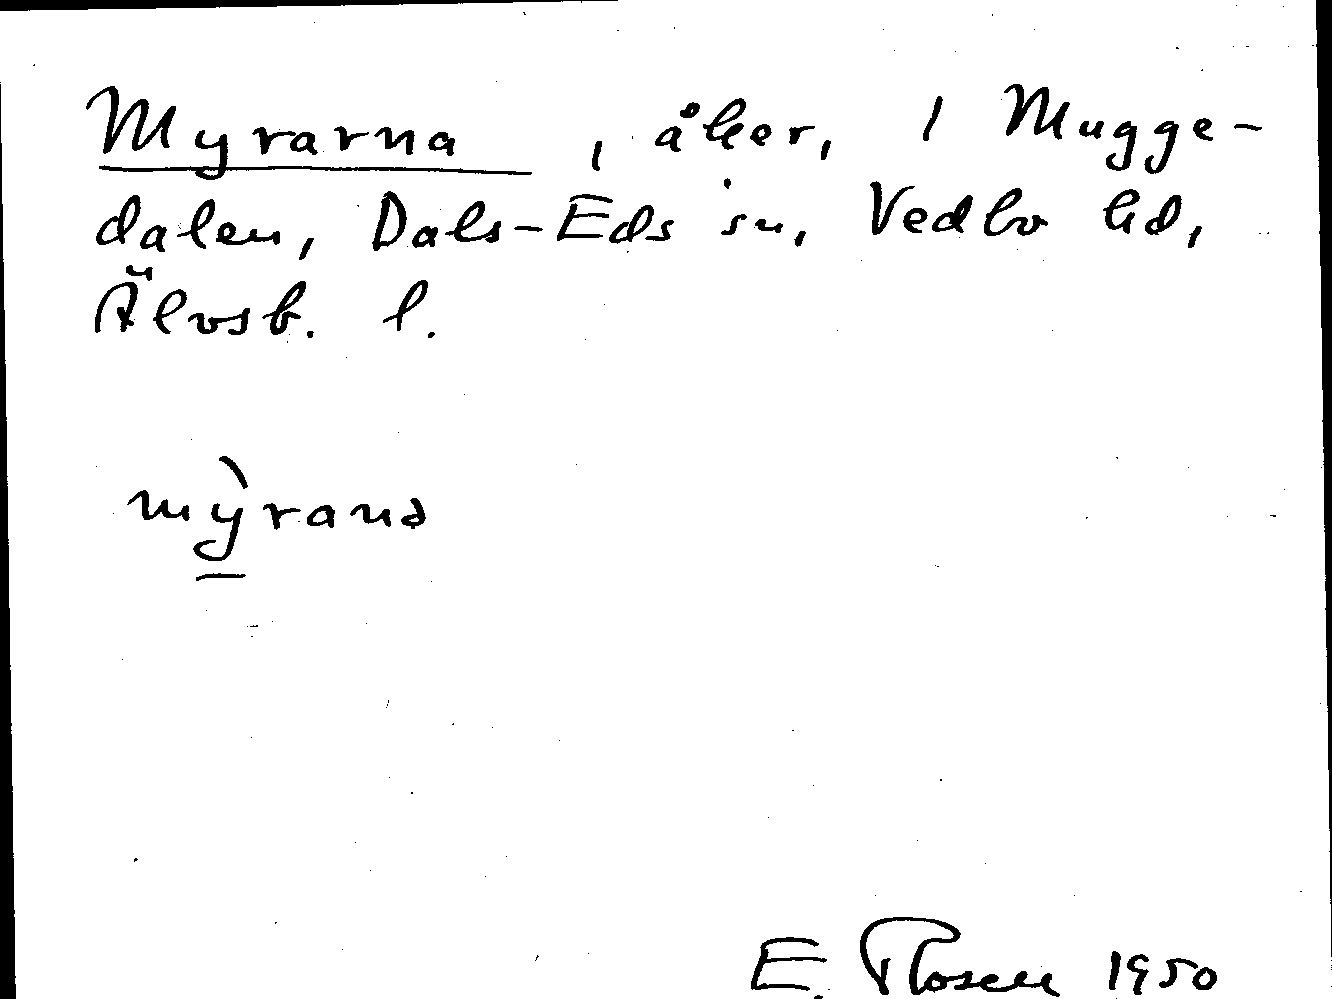 Myrarna, åker, 1 Mugge-
dalen, Dals-Eds sn, Vedbo hd,
Älvsb. l.
mỳranə
E. Rosell 1950